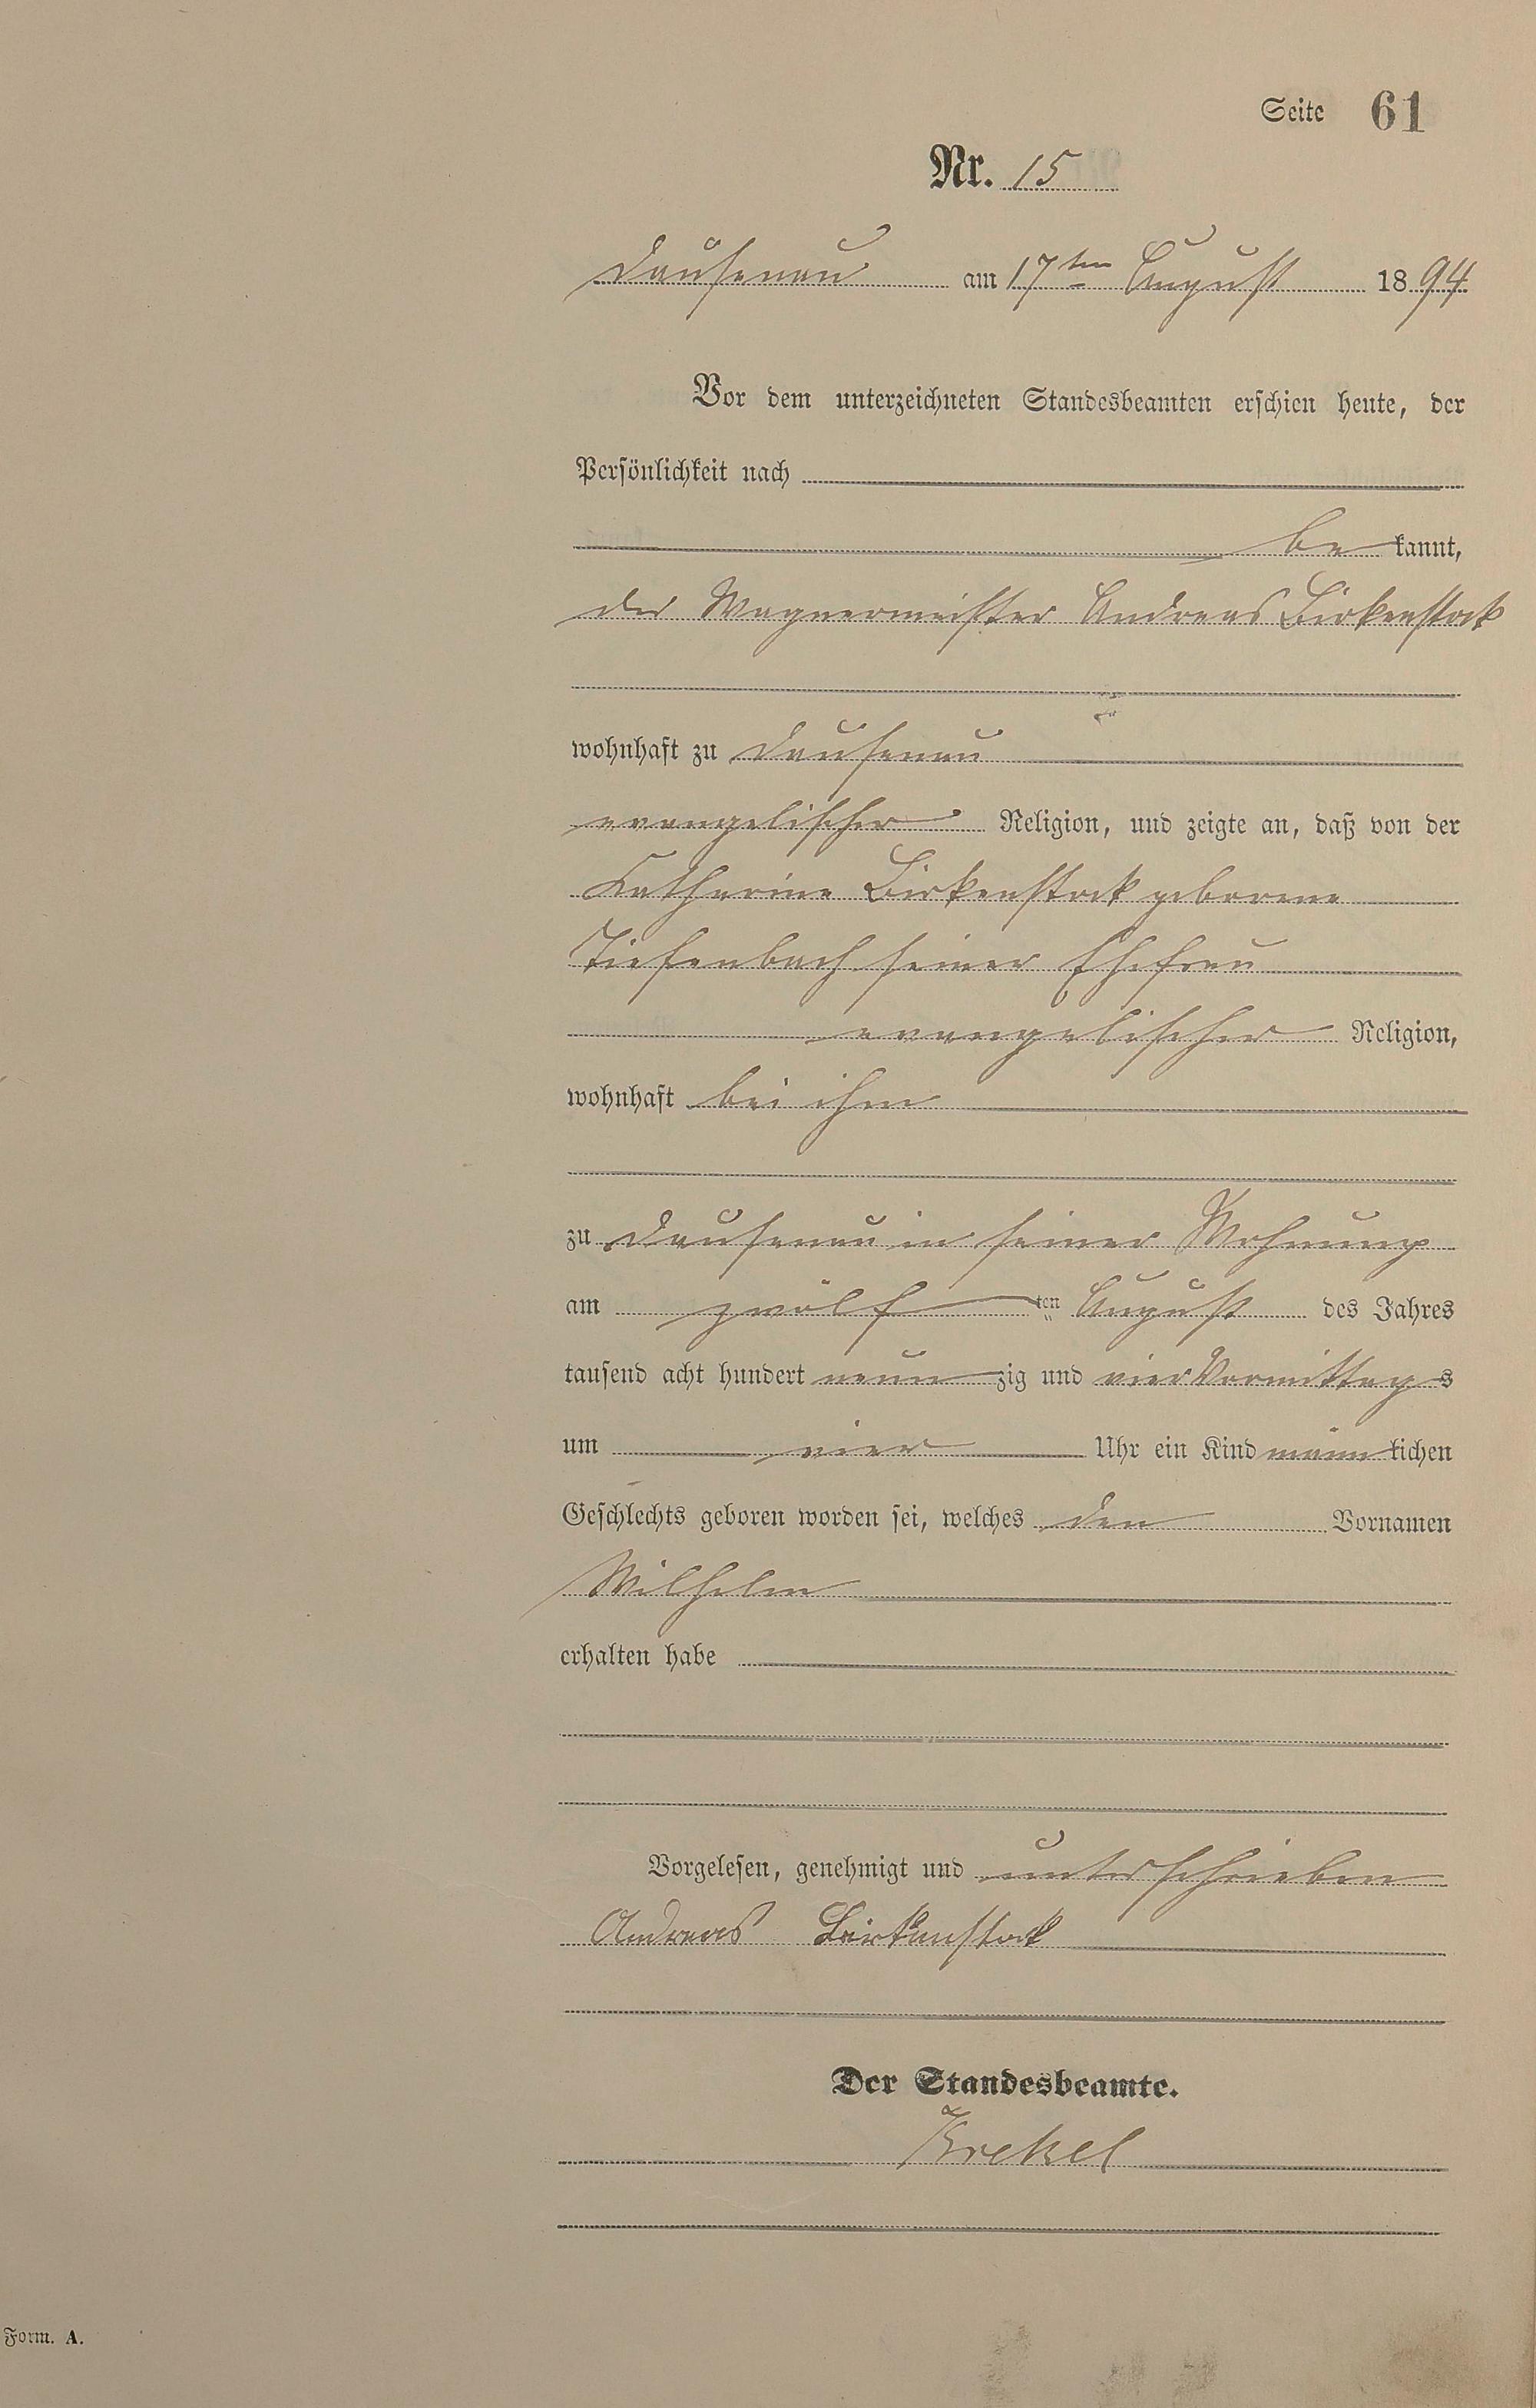 Seite 61
Nr. 15
Dausenau am 17ten August 1894
Vor dem unterzeichneten Standesbeamten erschien heute, der
Persönlichkeit nach
be kannt,
der Wagnermeister Andreas Birkenstock
wohnhaft zu Dausenau
evangelischer Religion, und zeigte an, daß von der
Katharine Birkenstock geborene
Tiefenbach seiner Ehefrau
evangelischer Religion,
wohnhaft bei ihm
zu Dausenau in seiner Wohnung
am zwölf ten August des Jahres
tausend acht hundert neun zig und vier Vormittags
um vier Uhr ein Kind männ lichen
Geschlechts geboren worden sei, welches den Vornamen
Wilhelm
erhalten habe
Vorgelesen, genehmigt und unterschrieben
Andreas Birkenstock
Der Standesbeamte.
Krekel
Form. A.